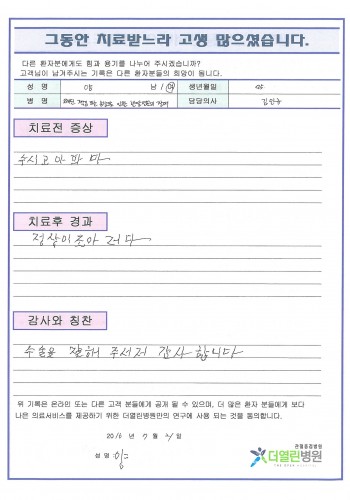 그동안 치료받느라 고생 많으셨습니다.
다른 환자분에게도 힘과 용기를 나누어 주시겠습니까?
고객님이 남겨주시는 기록은 다른 환자분들의 희망이 됩니다.
성 명 남 / 여 생년월일
병 명 담당의사
치료전 증상
쑤시고 아파 마
치료후 경과
정상이 조아 저다
감사와 칭찬
수술을 잘해 주서저 감사 합니다
위 기록은 온라인 또는 다른 고객 분들에게 공개 될 수 있으며, 더 많은 환자 분들에게 보다
나은 의료서비스를 제공하기 위한 더열린병원만의 연구에 사용 되는 것을 동의합니다.
2016 년 7 월 21일
성 명
관절중점병원
더열린병원